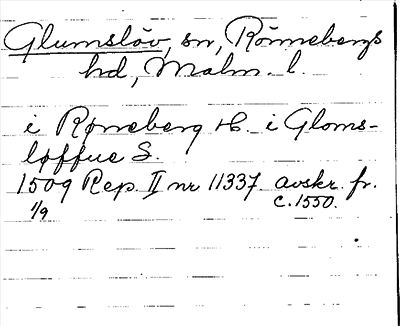 Glumslöv, sn, Rönnebergs
hd, Malm. l.
i Røneberg H. i Gloms-
løffue S.
1509 Rep. II nr 11337 avskr. fr.
1/9 c. 1550.